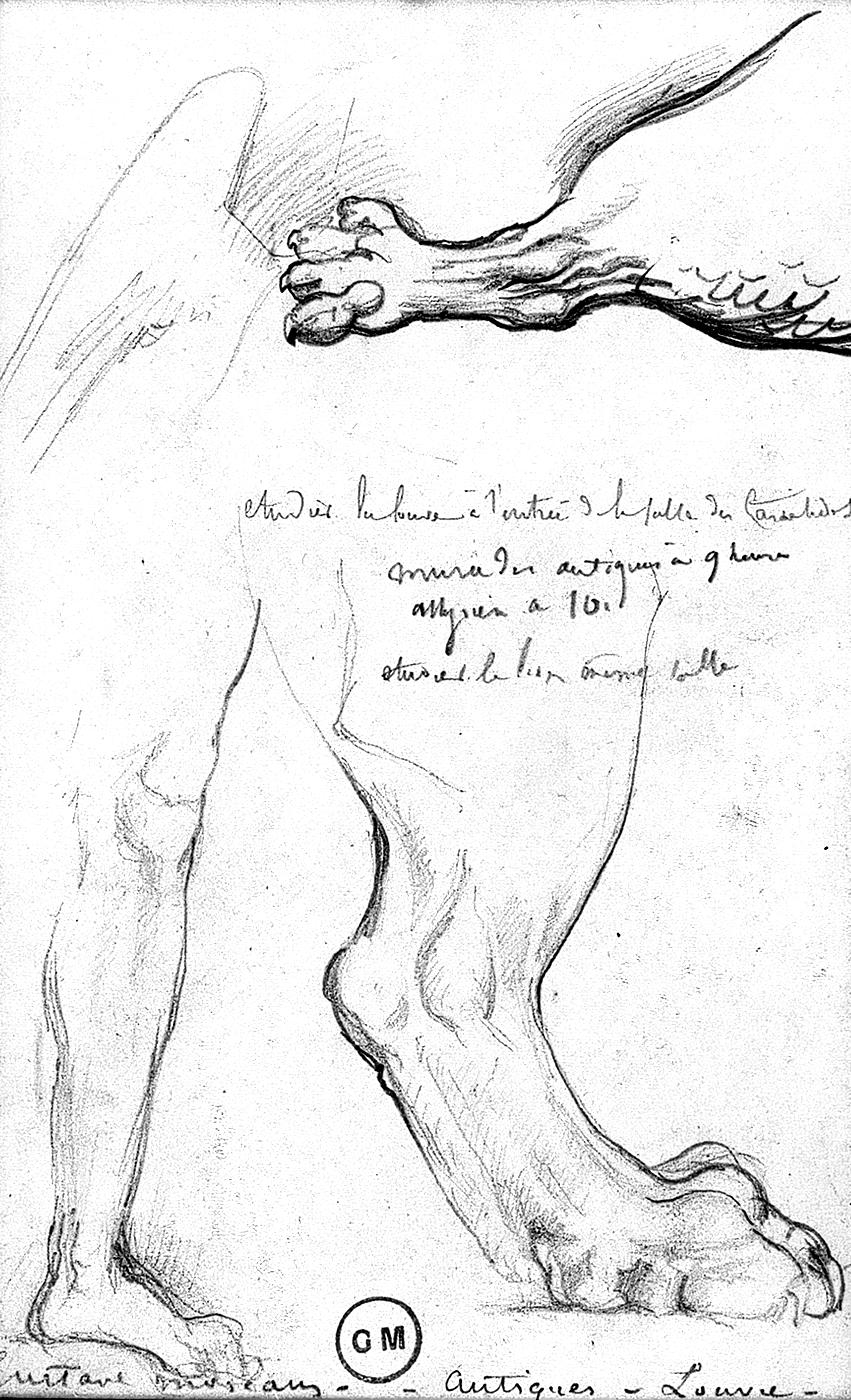 etudier la louve à l'entrée de la salle des Cariatides
musée des antiques à 9 heures
assyrien à 10.
etudier le lion même salle
GM
Gustave Moreau - - Antiques - Louvre -